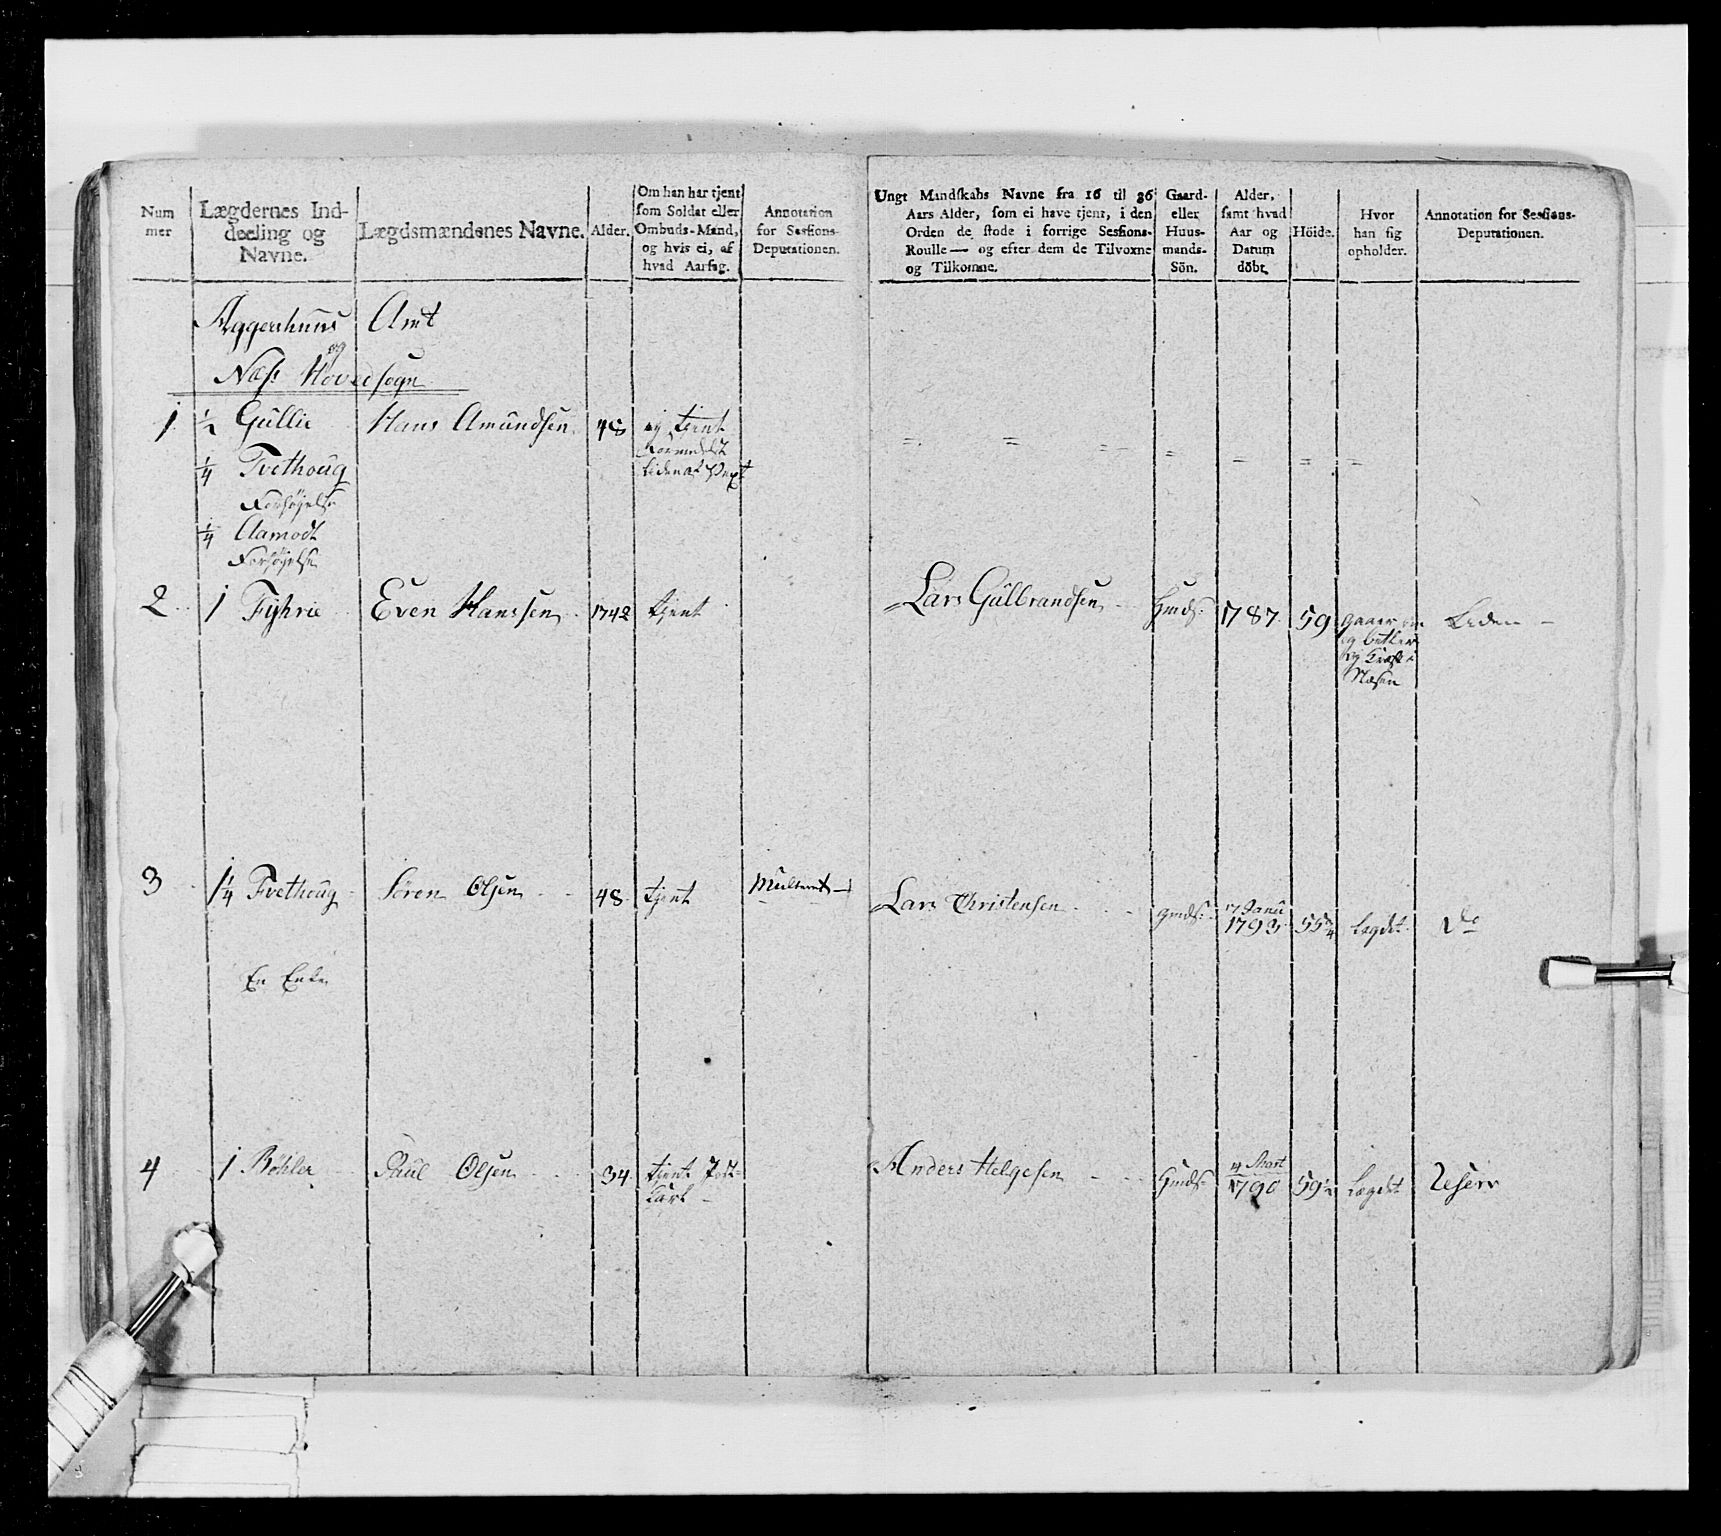 Num
mer
Lægdernes Ind-
deeling og
Navne.
Lægdsmændenes Navne.
Alder.
Om han har tjent
som Soldat eller
Ombuds-Mand,
og hvis ei, af
hvad Aarsag.
Annotation
for Sessions-
Deputationen.
Ungt Mandskabs Navne fra 16 til 36
Aars Alder, som ei have tjent, i den
Orden de stode i forrige Sessions-
Roulle — og efter dem de Tilvoxne
og Tilkomne.
Gaard-
eller
Huus-
mands-
Sön.
Alder,
samt hvad
Aar og
Datum
döbt.
Höide.
Hvor
han sig
opholder.
Annotation for Sessions-
Deputationen.
Aggershuus Amt
og
Næss Hovedsogn
1 ½ Gullie Hans Amundsen 48 ej tjent
formedelst
liden af Vext
¼ Tvethoug
Forhøjelse
¼ Aamodt
Forhøjelse
2 1 Fyhrie Even Hanssen 1742 tjent
Lars Gulbrandsen Hmds: 1787 59 gaaer om
og betler
i
Næsen
Liden
3 1¼ Tvethoug Sören Olsen 48 tjent Multeret
Lars Christensen gmds: 17 Janu
1793 55¾ Legdet do
En Enke
4 1 Böhler Paul Olsen 34 tjent
Karl
Anders Helgesen Hmds: 4 Mart
1790 59½ Lægdet Reserv